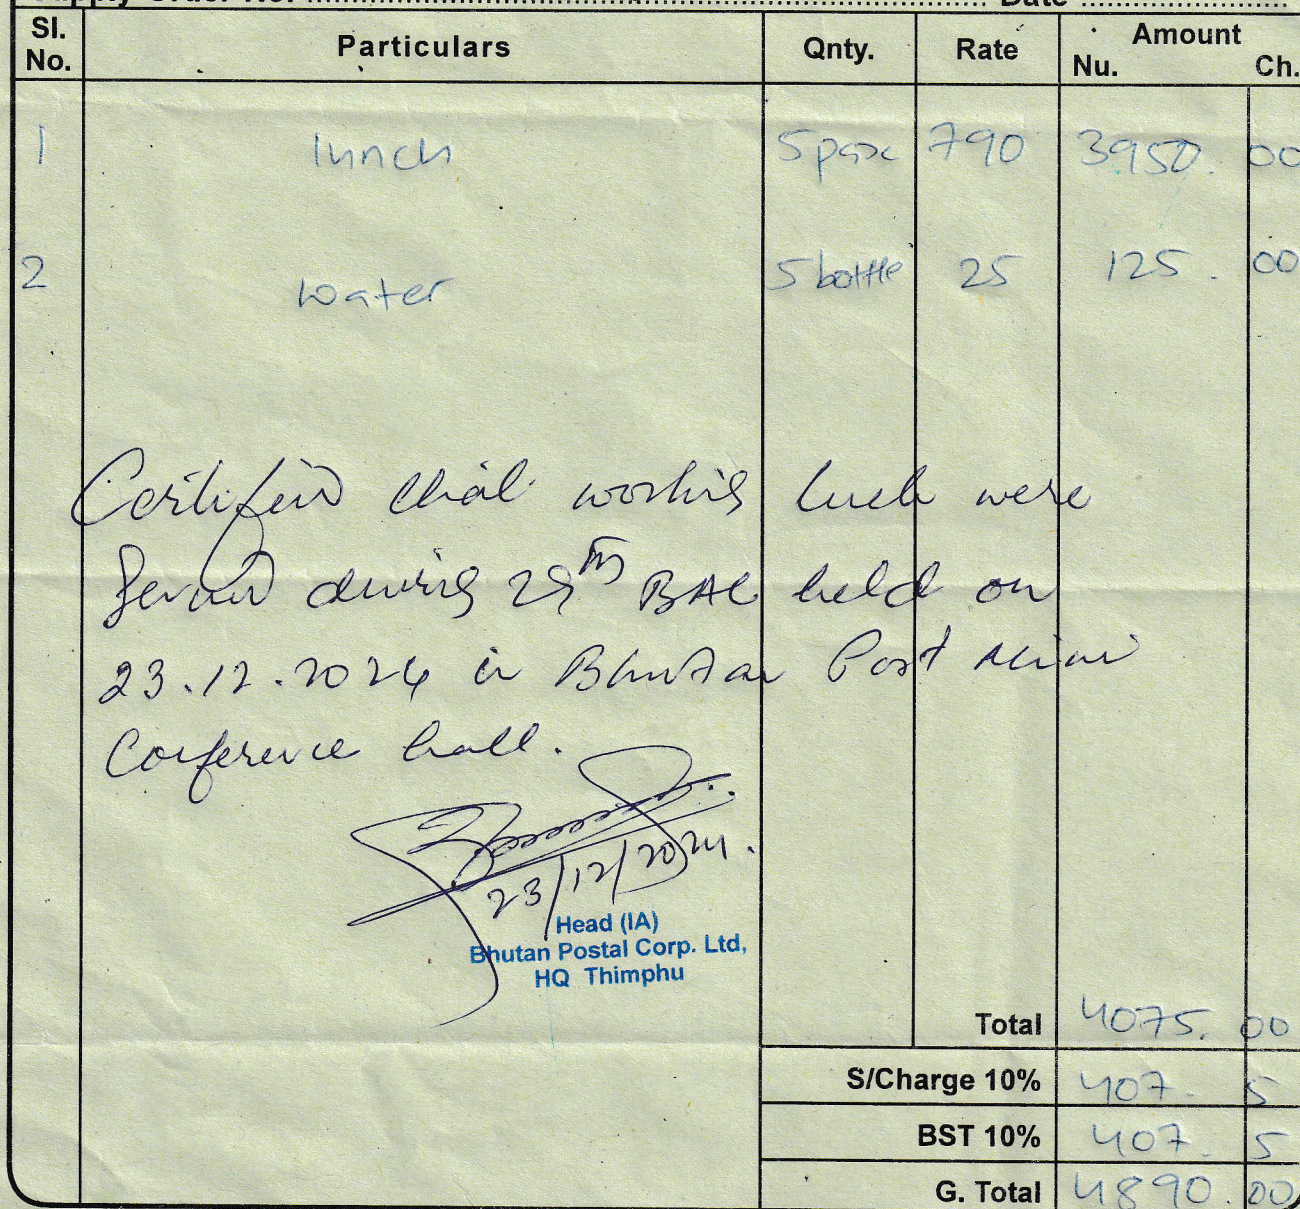 Supply Order No. .......... Date ..........
Sl. No. Particulars Qnty. Rate Amount
Nu. Ch.
1 lunch 5 pax 790 3950. 00
2 water 5 bottle 25 125. 00
Certified that working luch were
served during 29th BAC held on
23.12.2024 in Bhutan Post Mini
Conference hall.
23/12/2024.
Head (IA)
Bhutan Postal Corp. Ltd,
HQ Thimphu
Total 4075. 00
S/Charge 10% 407. 5
BST 10% 407. 5
G. Total 4890. 00